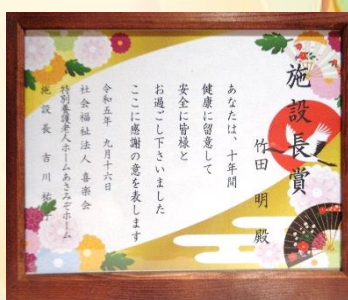 施設長賞
竹田 明 殿
あなたは、十年間
健康に留意して
安全に皆様と
お過ごし下さいました
ここに感謝の意を表します
令和五年 九月十六日
社会福祉法人 喜楽会
特別養護老人ホームあさみぞホーム
施設長 吉川 祐